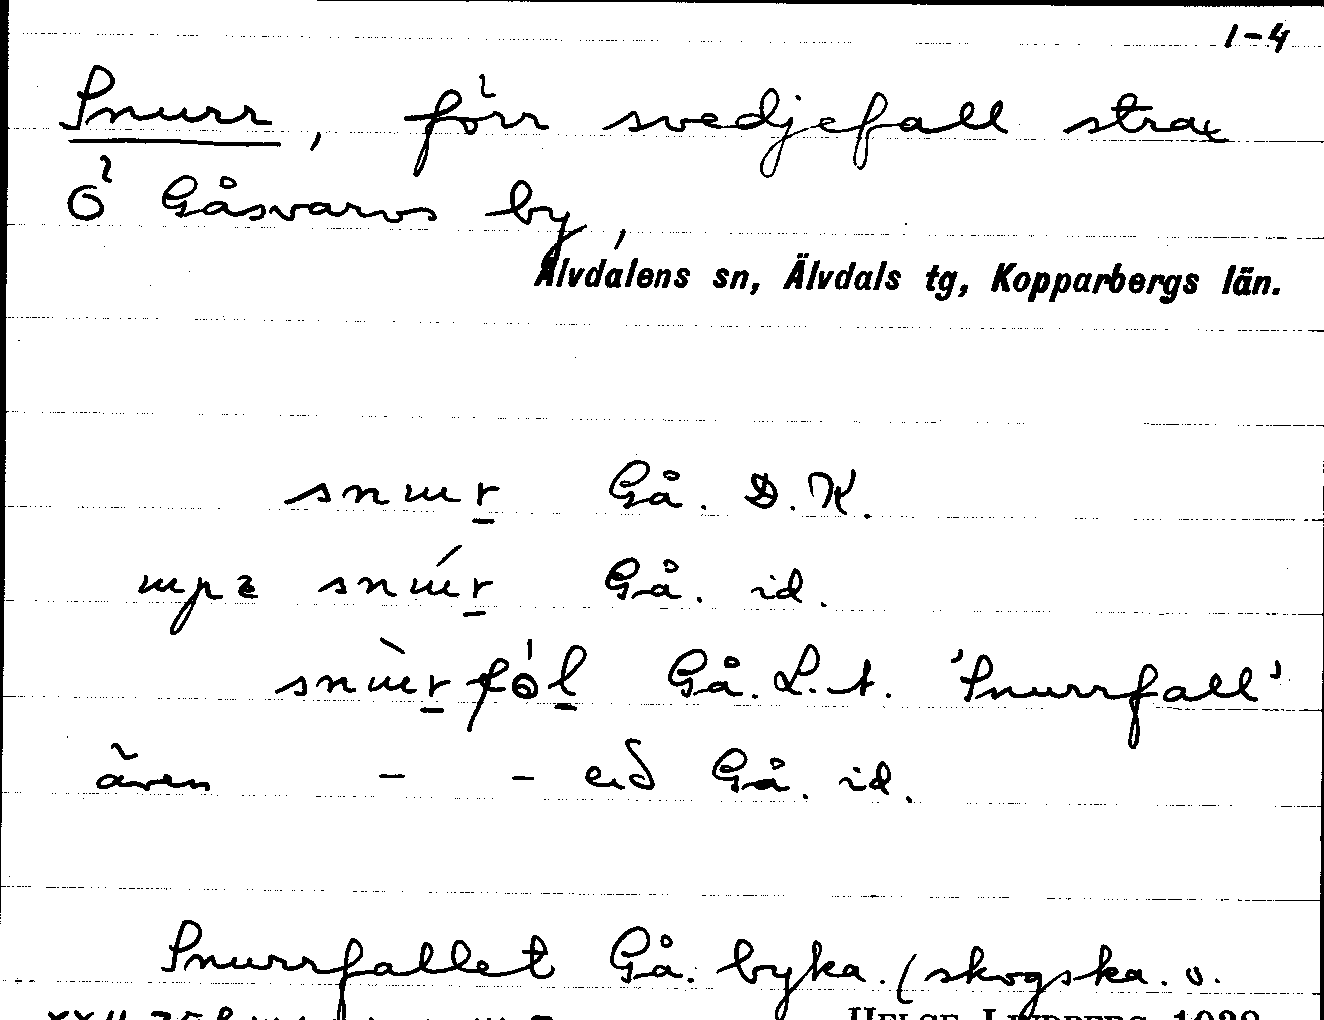 1-4
Snurr, förr svedjefall strax
Ö Gåsvarvs by,
Älvdalens sn, Älvdals tg, Kopparbergs län.
snur Gå. D.K.
upɔ snúr Gå. id.
snùrfól Gå. L.A. 'Snurrfall'
även - - Gå. id.
Snurrfallet Gå. byka. (skogska. o.
HELGE LINDBERG